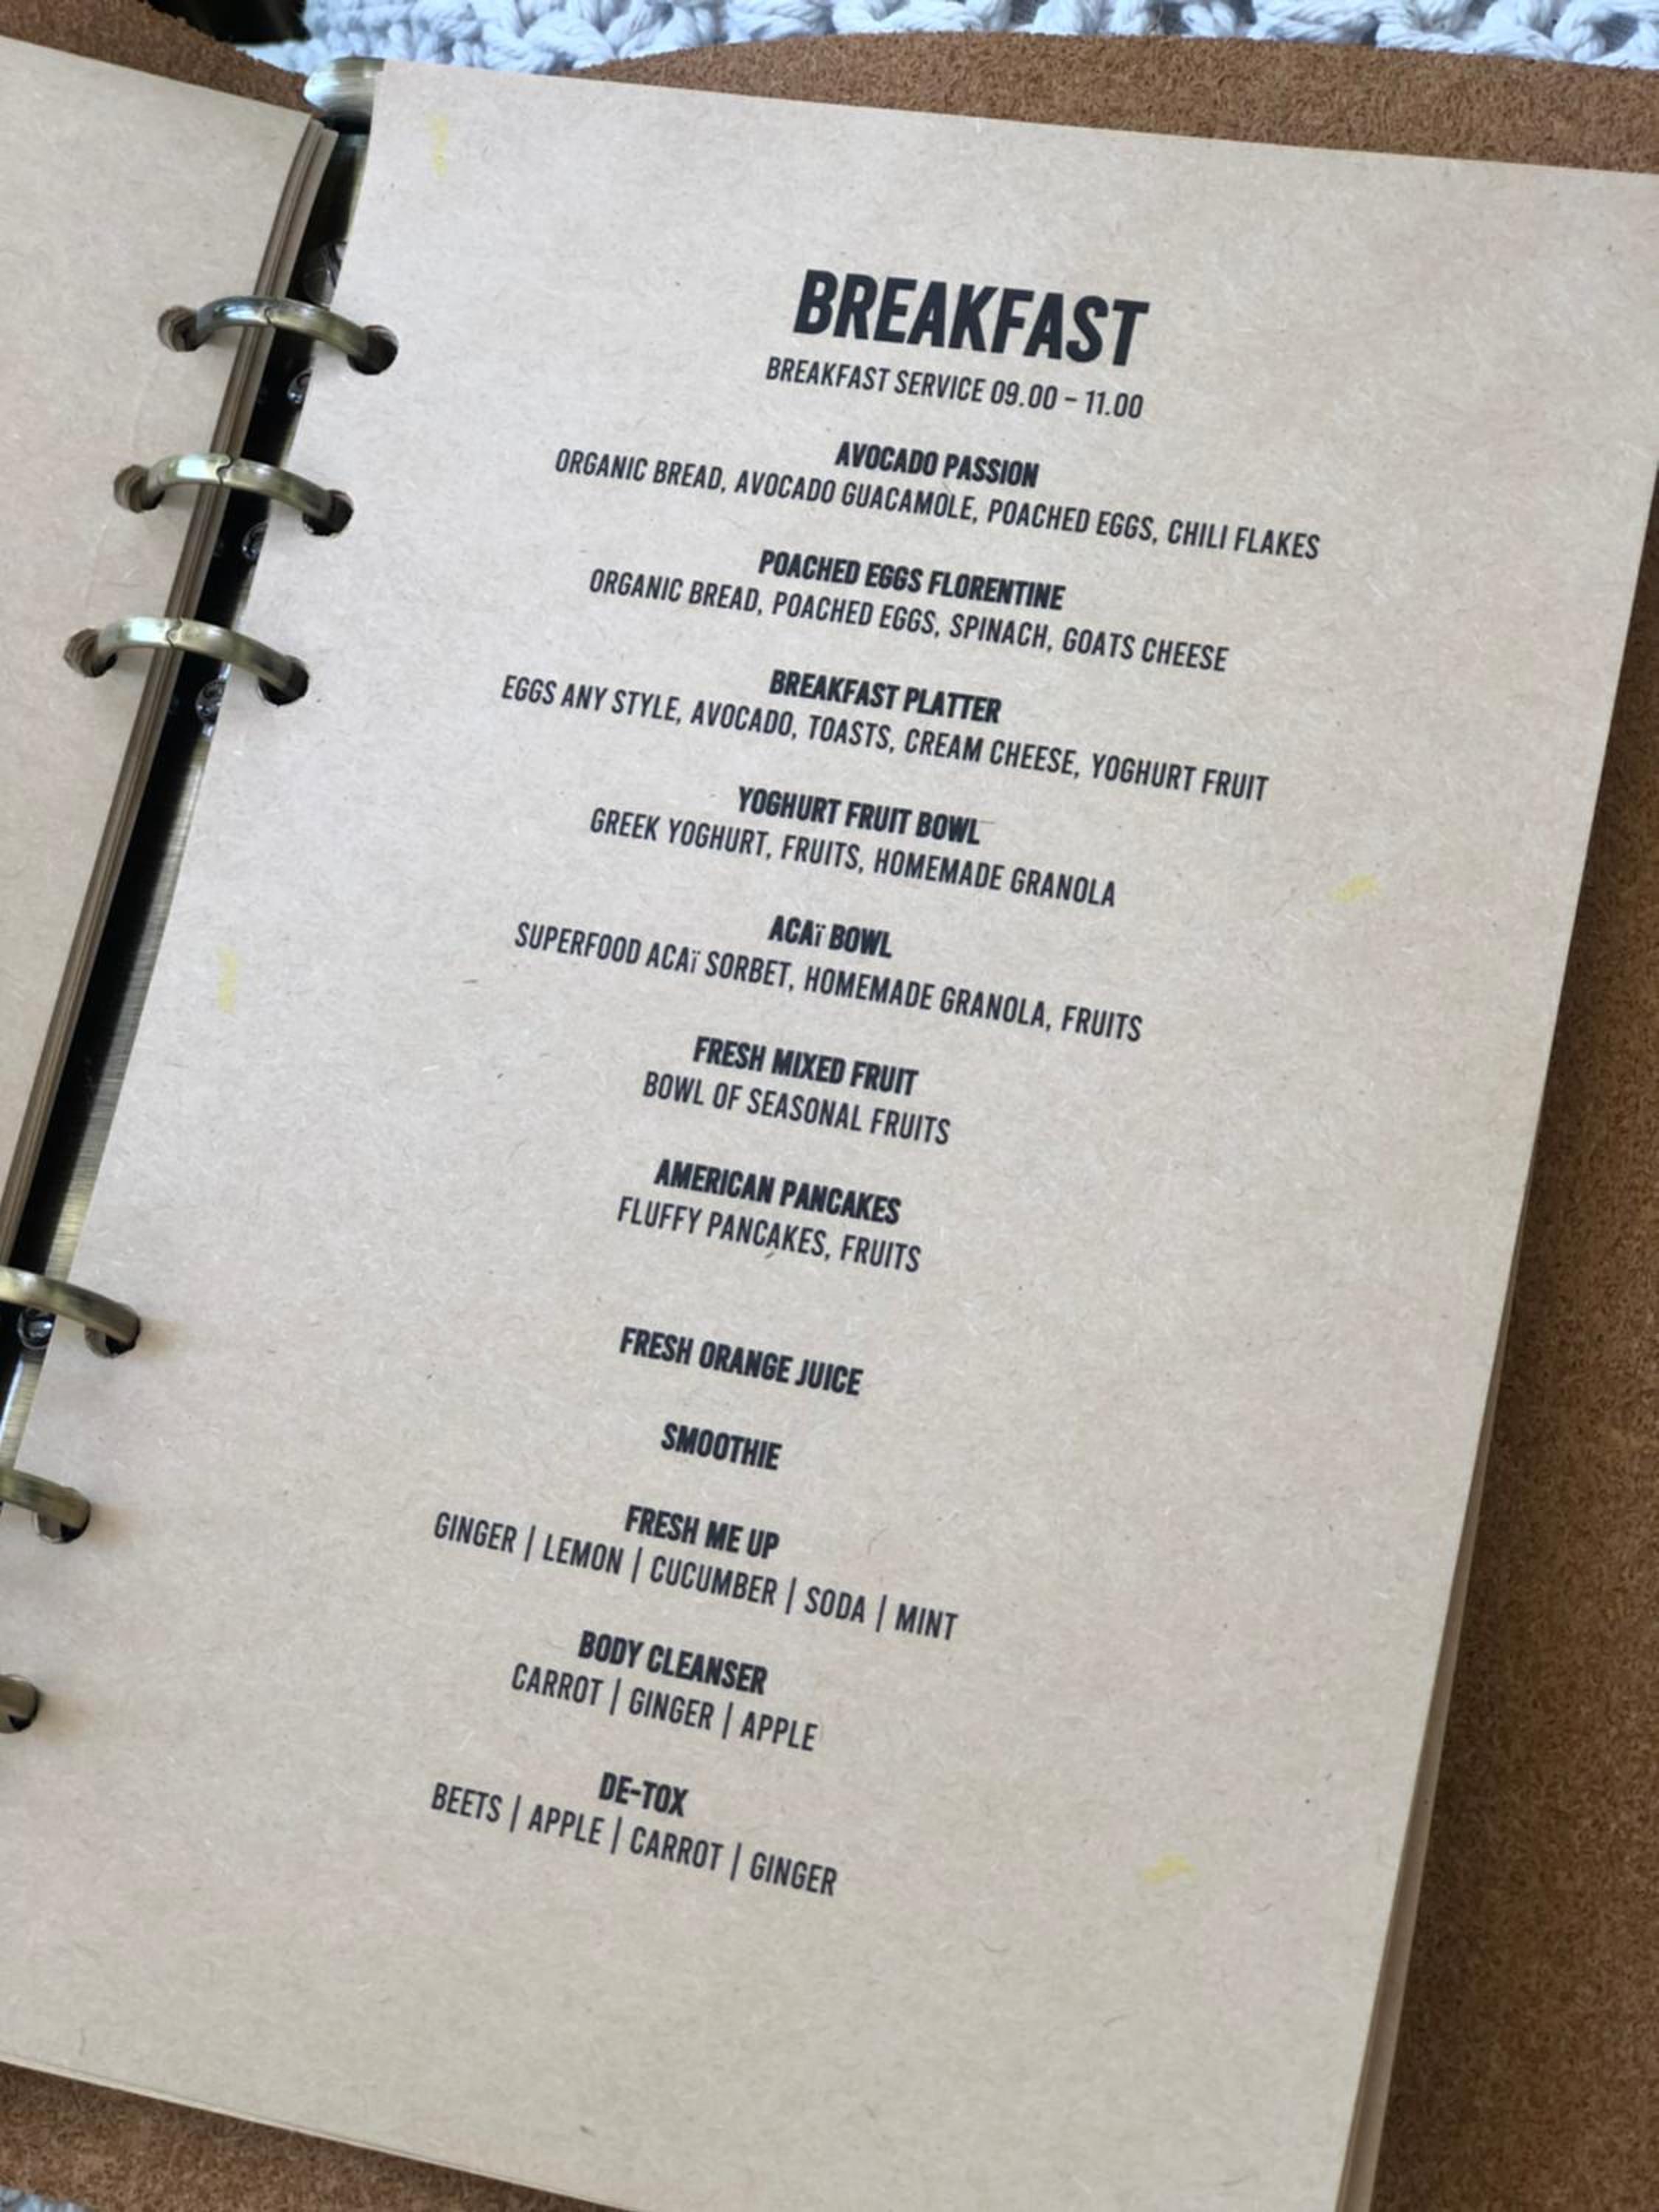 BREAKFAST
BREAKFAST SERVICE 09.00 – 11.00
AVOCADO PASSION
ORGANIC BREAD, AVOCADO GUACAMOLE, POACHED EGGS, CHILI FLAKES
POACHED EGGS FLORENTINE
ORGANIC BREAD, POACHED EGGS, SPINACH, GOATS CHEESE
BREAKFAST PLATTER
EGGS ANY STYLE, AVOCADO, TOASTS, CREAM CHEESE, YOGHURT FRUIT
YOGHURT FRUIT BOWL
GREEK YOGHURT, FRUITS, HOMEMADE GRANOLA
ACAï BOWL
SUPERFOOD ACAï SORBET, HOMEMADE GRANOLA, FRUITS
FRESH MIXED FRUIT
BOWL OF SEASONAL FRUITS
AMERICAN PANCAKES
FLUFFY PANCAKES, FRUITS
FRESH ORANGE JUICE
SMOOTHIE
FRESH ME UP
GINGER | LEMON | CUCUMBER | SODA | MINT
BODY CLEANSER
CARROT | GINGER | APPLE
DE-TOX
BEETS | APPLE | CARROT | GINGER